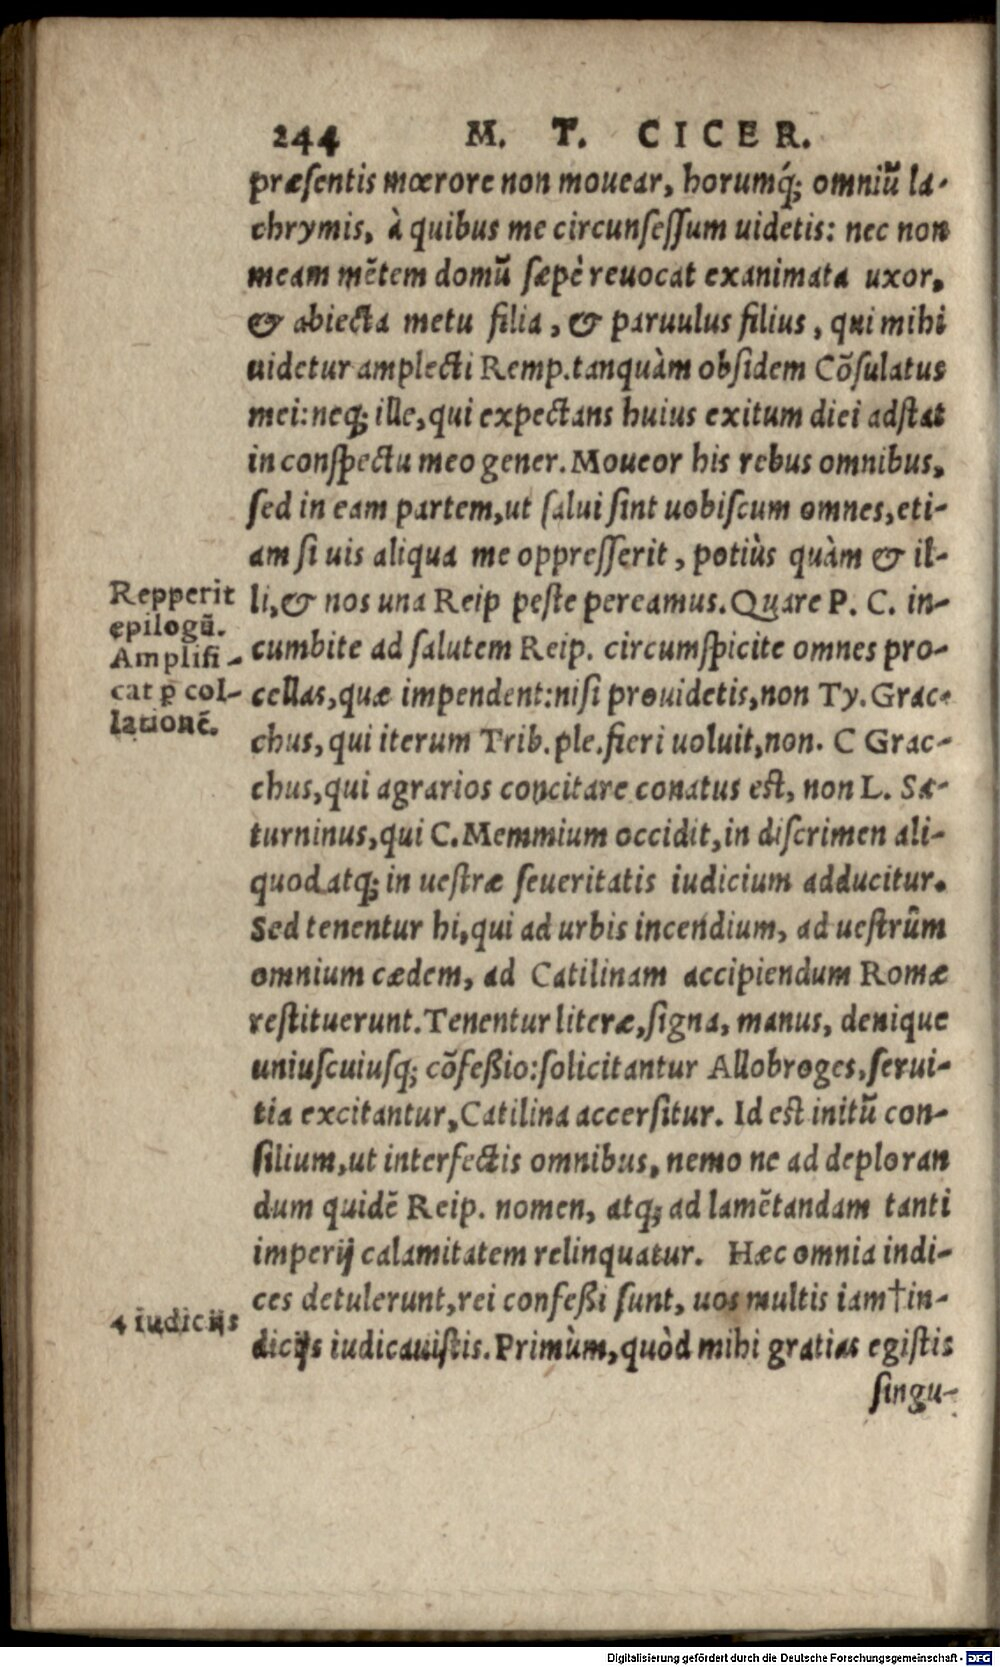 244 M. T. CICER.
præsentis mœrore non mouear, horumq́; omniũ la-
chrymis, à quibus me circunsessum uidetis: nec non
meam mẽtem domũ sæpè reuocat exanimata uxor,
& abiecta metu filia, & paruulus filius, qui mihi
uidetur amplecti Remp. tanquàm obsidem Cõsulatus
mei: neq; ille, qui expectans huius exitum diei adstat
in conspectu meo gener. Moueor his rebus omnibus,
sed in eam partem, ut salui sint uobiscum omnes, eti-
am si uis aliqua me oppresserit, potiùs quàm & il-
li, & nos una Reip peste pereamus. Quare P. C. in-
cumbite ad salutem Reip. circumspicite omnes pro-
cellas, quæ impendent: nisi prouidetis, non Ty. Grac-
chus, qui iterum Trib. ple. fieri uoluit, non. C Grac-
chus, qui agrarios concitare conatus est, non L. Sa-
turninus, qui C. Memmium occidit, in discrimen ali-
quod atq; in uestræ seueritatis iudicium adducitur.
Sed tenentur hi, qui ad urbis incendium, ad uestrûm
omnium cædem, ad Catilinam accipiendum Romæ
restituerunt. Tenentur literæ, signa, manus, denique
uniuscuiusq; cõfeßio: solicitantur Allobroges, serui-
tia excitantur, Catilina accersitur. Id est initũ con-
silium, ut interfectis omnibus, nemo ne ad deploran
dum quidẽ Reip. nomen, atq; ad lamẽtandam tanti
imperij calamitatem relinquatur. Hæc omnia indi-
ces detulerunt, rei confeßi sunt, uos multis iam†in-
dicijs iudicauistis. Primùm, quòd mihi gratias egistis
singu-
Repperit
epilogũ.
Amplifi-
cat ꝑ col-
lationẽ.
4 iudicijs
Digitalisierung gefördert durch die Deutsche Forschungsgemeinschaft - DFG